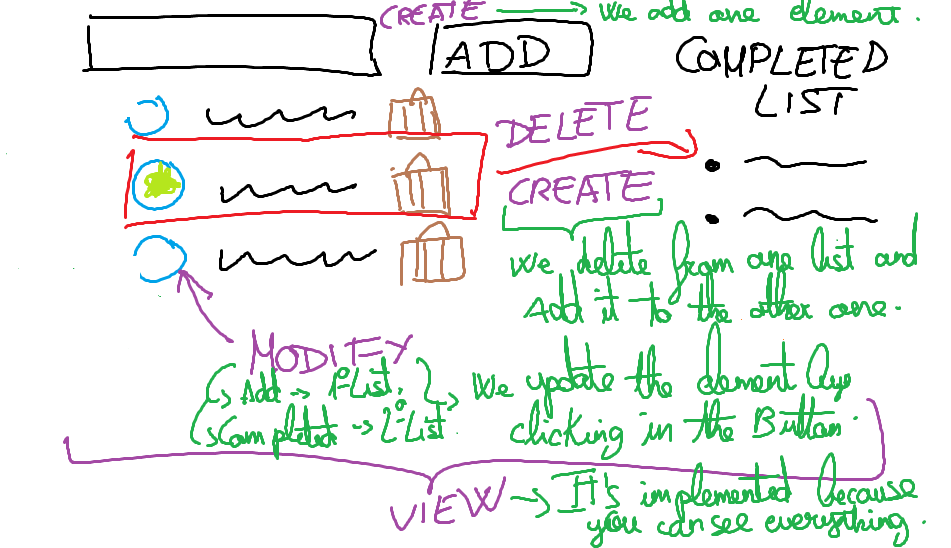 CREATE → We add one element.
ADD
COMPLETED
LIST
DELETE
CREATE
We delete from one list and
Add it to the other one.
MODIFY
Add → 1º List.
Completed → 2º List
We update the element by
clicking in the Button.
VIEW → It's implemented because
you can see everything.